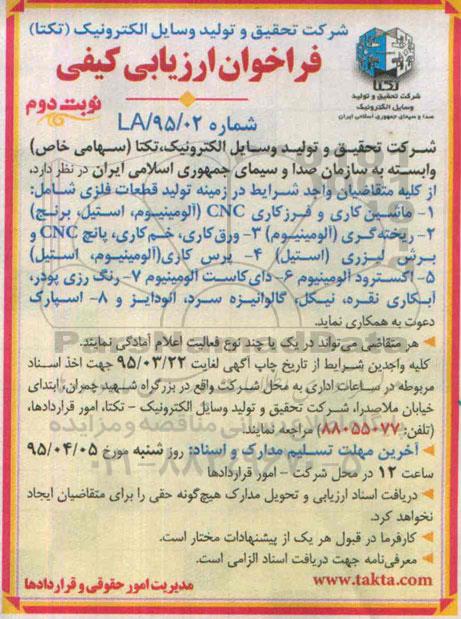 شرکت تحقیق و تولید وسایل الکترونیک (تکتا)
فراخوان ارزیابی کیفی
نوبت دوم
تکتا
شرکت تحقیق و تولید
وسایل الکترونیک
صدا و سیمای جمهوری اسلامی ایران
شماره LA/۹۵/۰۲
شرکت تحقیق و تولید وسایل الکترونیک،تکتا (سهامی خاص)
وابسته به سازمان صدا و سیمای جمهوری اسلامی ایران در نظر دارد،
از کلیه متقاضیان واجد شرایط در زمینه تولید قطعات فلزی شامل:
۱- ماشین کاری و فرزکاری CNC (آلومینیوم، استیل، برنج)
۲- ریخته‌گری (آلومینیوم) ۳- ورق‌کاری، خم‌کاری، پانچ CNC و
برش لیزری (استیل) ۴- پرس کاری(آلومینیوم، استیل)
۵- اکسترود آلومینیوم ۶- دای‌کاست آلومینیوم ۷- رنگ رزی پودر،
آبکاری نقره، نیکل، گالوانیزه سرد، آلودایز و ۸- اسپارک
دعوت به همکاری نماید.
هر متقاضی می‌تواند در یک یا چند نوع فعالیت اعلام آمادگی نمایند.
کلیه واجدین شرایط از تاریخ چاپ آگهی لغایت ۹۵/۰۳/۲۲ جهت اخذ اسناد
مربوطه در ساعات اداری به محل شرکت واقع در بزرگراه شهید چمران، ابتدای
خیابان ملاصدرا، شرکت تحقیق و تولید وسایل الکترونیک - تکتا، امور قراردادها،
(تلفن: ۸۸۰۵۵۰۷۷) مراجعه نمایند.
آخرین مهلت تسلیم مدارک و اسناد: روز شنبه مورخ ۹۵/۰۴/۰۵
ساعت ۱۲ در محل شرکت - امور قراردادها
دریافت اسناد ارزیابی و تحویل مدارک هیچ‌گونه حقی را برای متقاضیان ایجاد
نخواهد کرد.
کارفرما در قبول هر یک از پیشنهادات مختار است.
معرفی‌نامه جهت دریافت اسناد الزامی است.
www.takta.com
مدیریت امور حقوقی و قراردادها